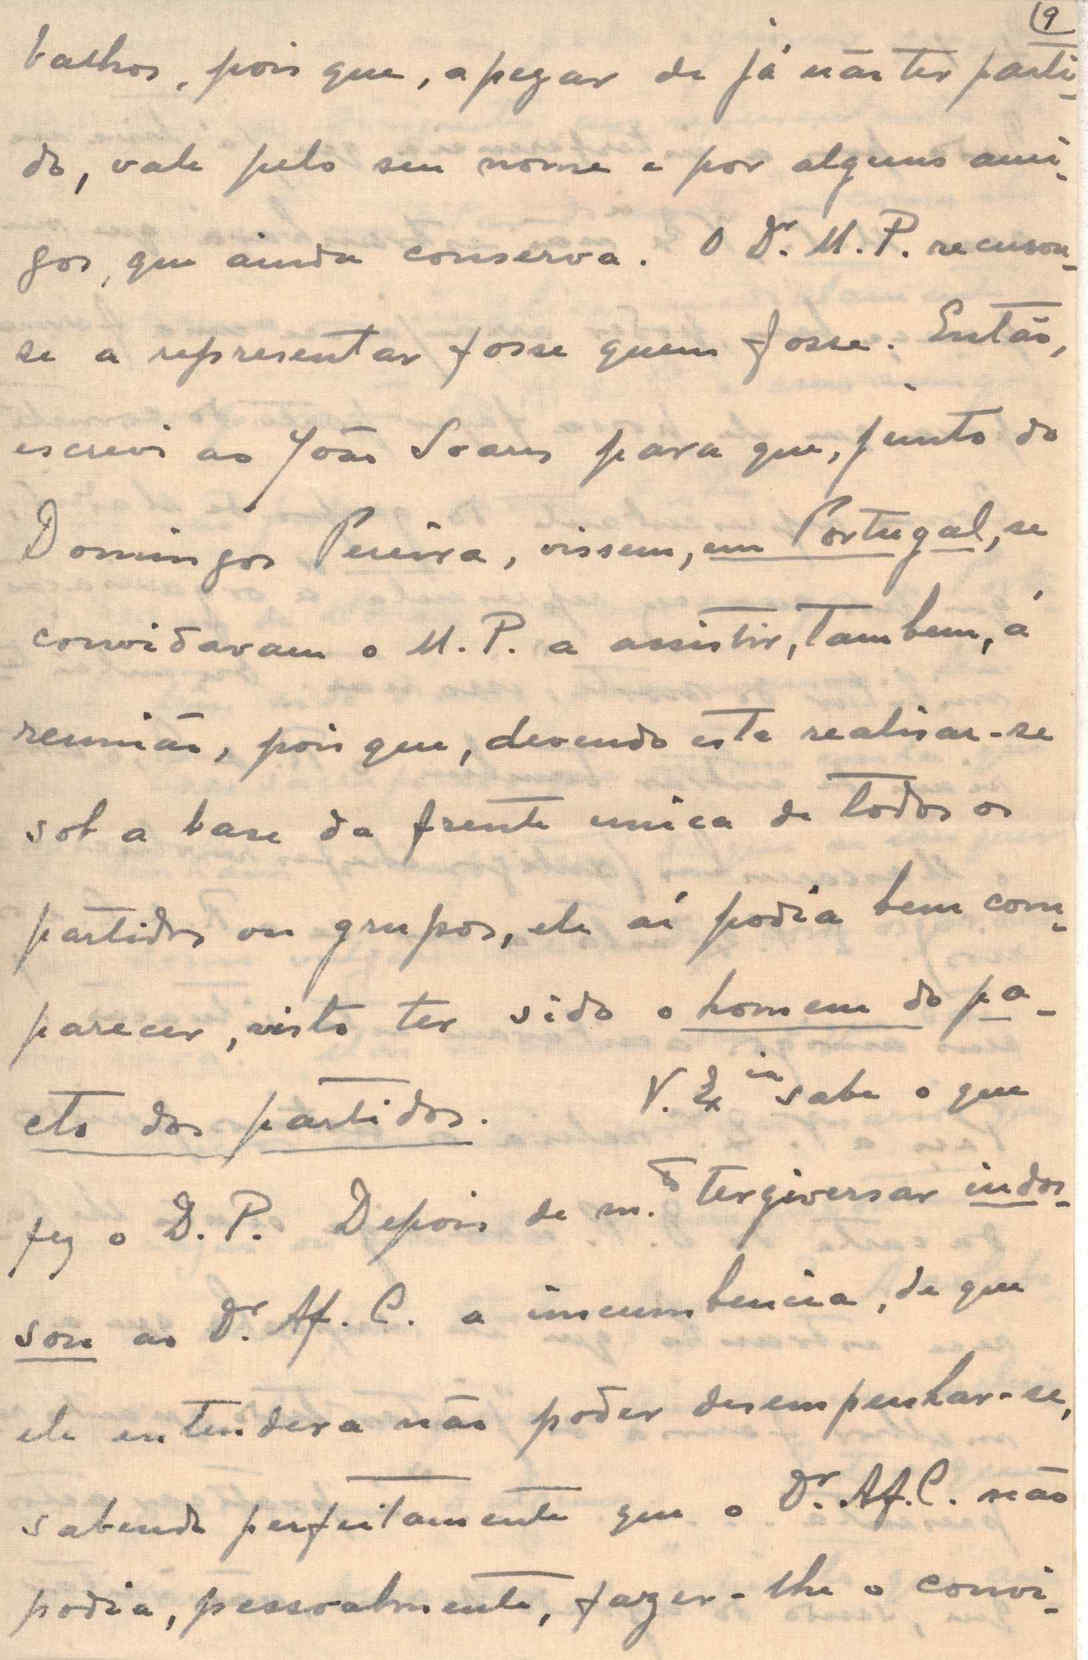 9
balhos, pois que, apezar de já não ter parti-
do, vale pelo seu nome e por alguns ami-
gos, que ainda conserva. O Dr. M. P. recusou-
se a representar fosse quem fosse. Então,
escrevi ao João Soares para que, junto do
Domingos Pereira, vissem, em Portugal, se
convidavam o M. P. a assistir, tambem, á
reunião, pois que, devendo esta realisar-se
sob a base da frente unica de todos os
partidos ou grupos, ele aí podia bem com-
parecer, visto ter sido o homem do pa-
cto dos partidos. V. Ex.cia sabe o que
fez o D. P. Depois de m.to tergiversar endos-
sou ao Dr. Af. C. a incumbencia, de que
ele entendera não poder desempenhar-se,
sabendo perfeitamente que o Dr. Af. C. não
podia, pessoalmente, fazer-lhe o convi-